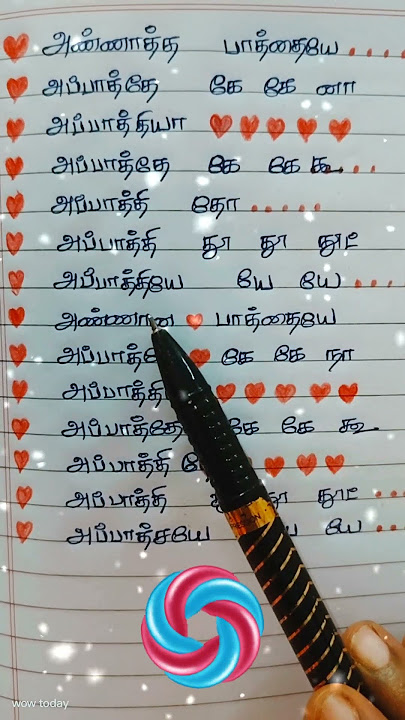 அண்ணாத்த பாத்தையே ....
அப்பாத்தே கே கே னா
அப்பாத்தியா
அப்பாத்தே கே கே கூ...
அப்பாத்தி தோ ......
அப்பாத்தி தூ தூ தூட்
அப்பாத்தியே யே யே ...
அண்ணான பாத்தையே
கே கே நா
அப்பாத்தி
அப்பாத்தே கே கே கூ
அப்பாத்தி
அப்பாத்தி தூட் ...
அப்பாத்சயே யே ...
wow.today